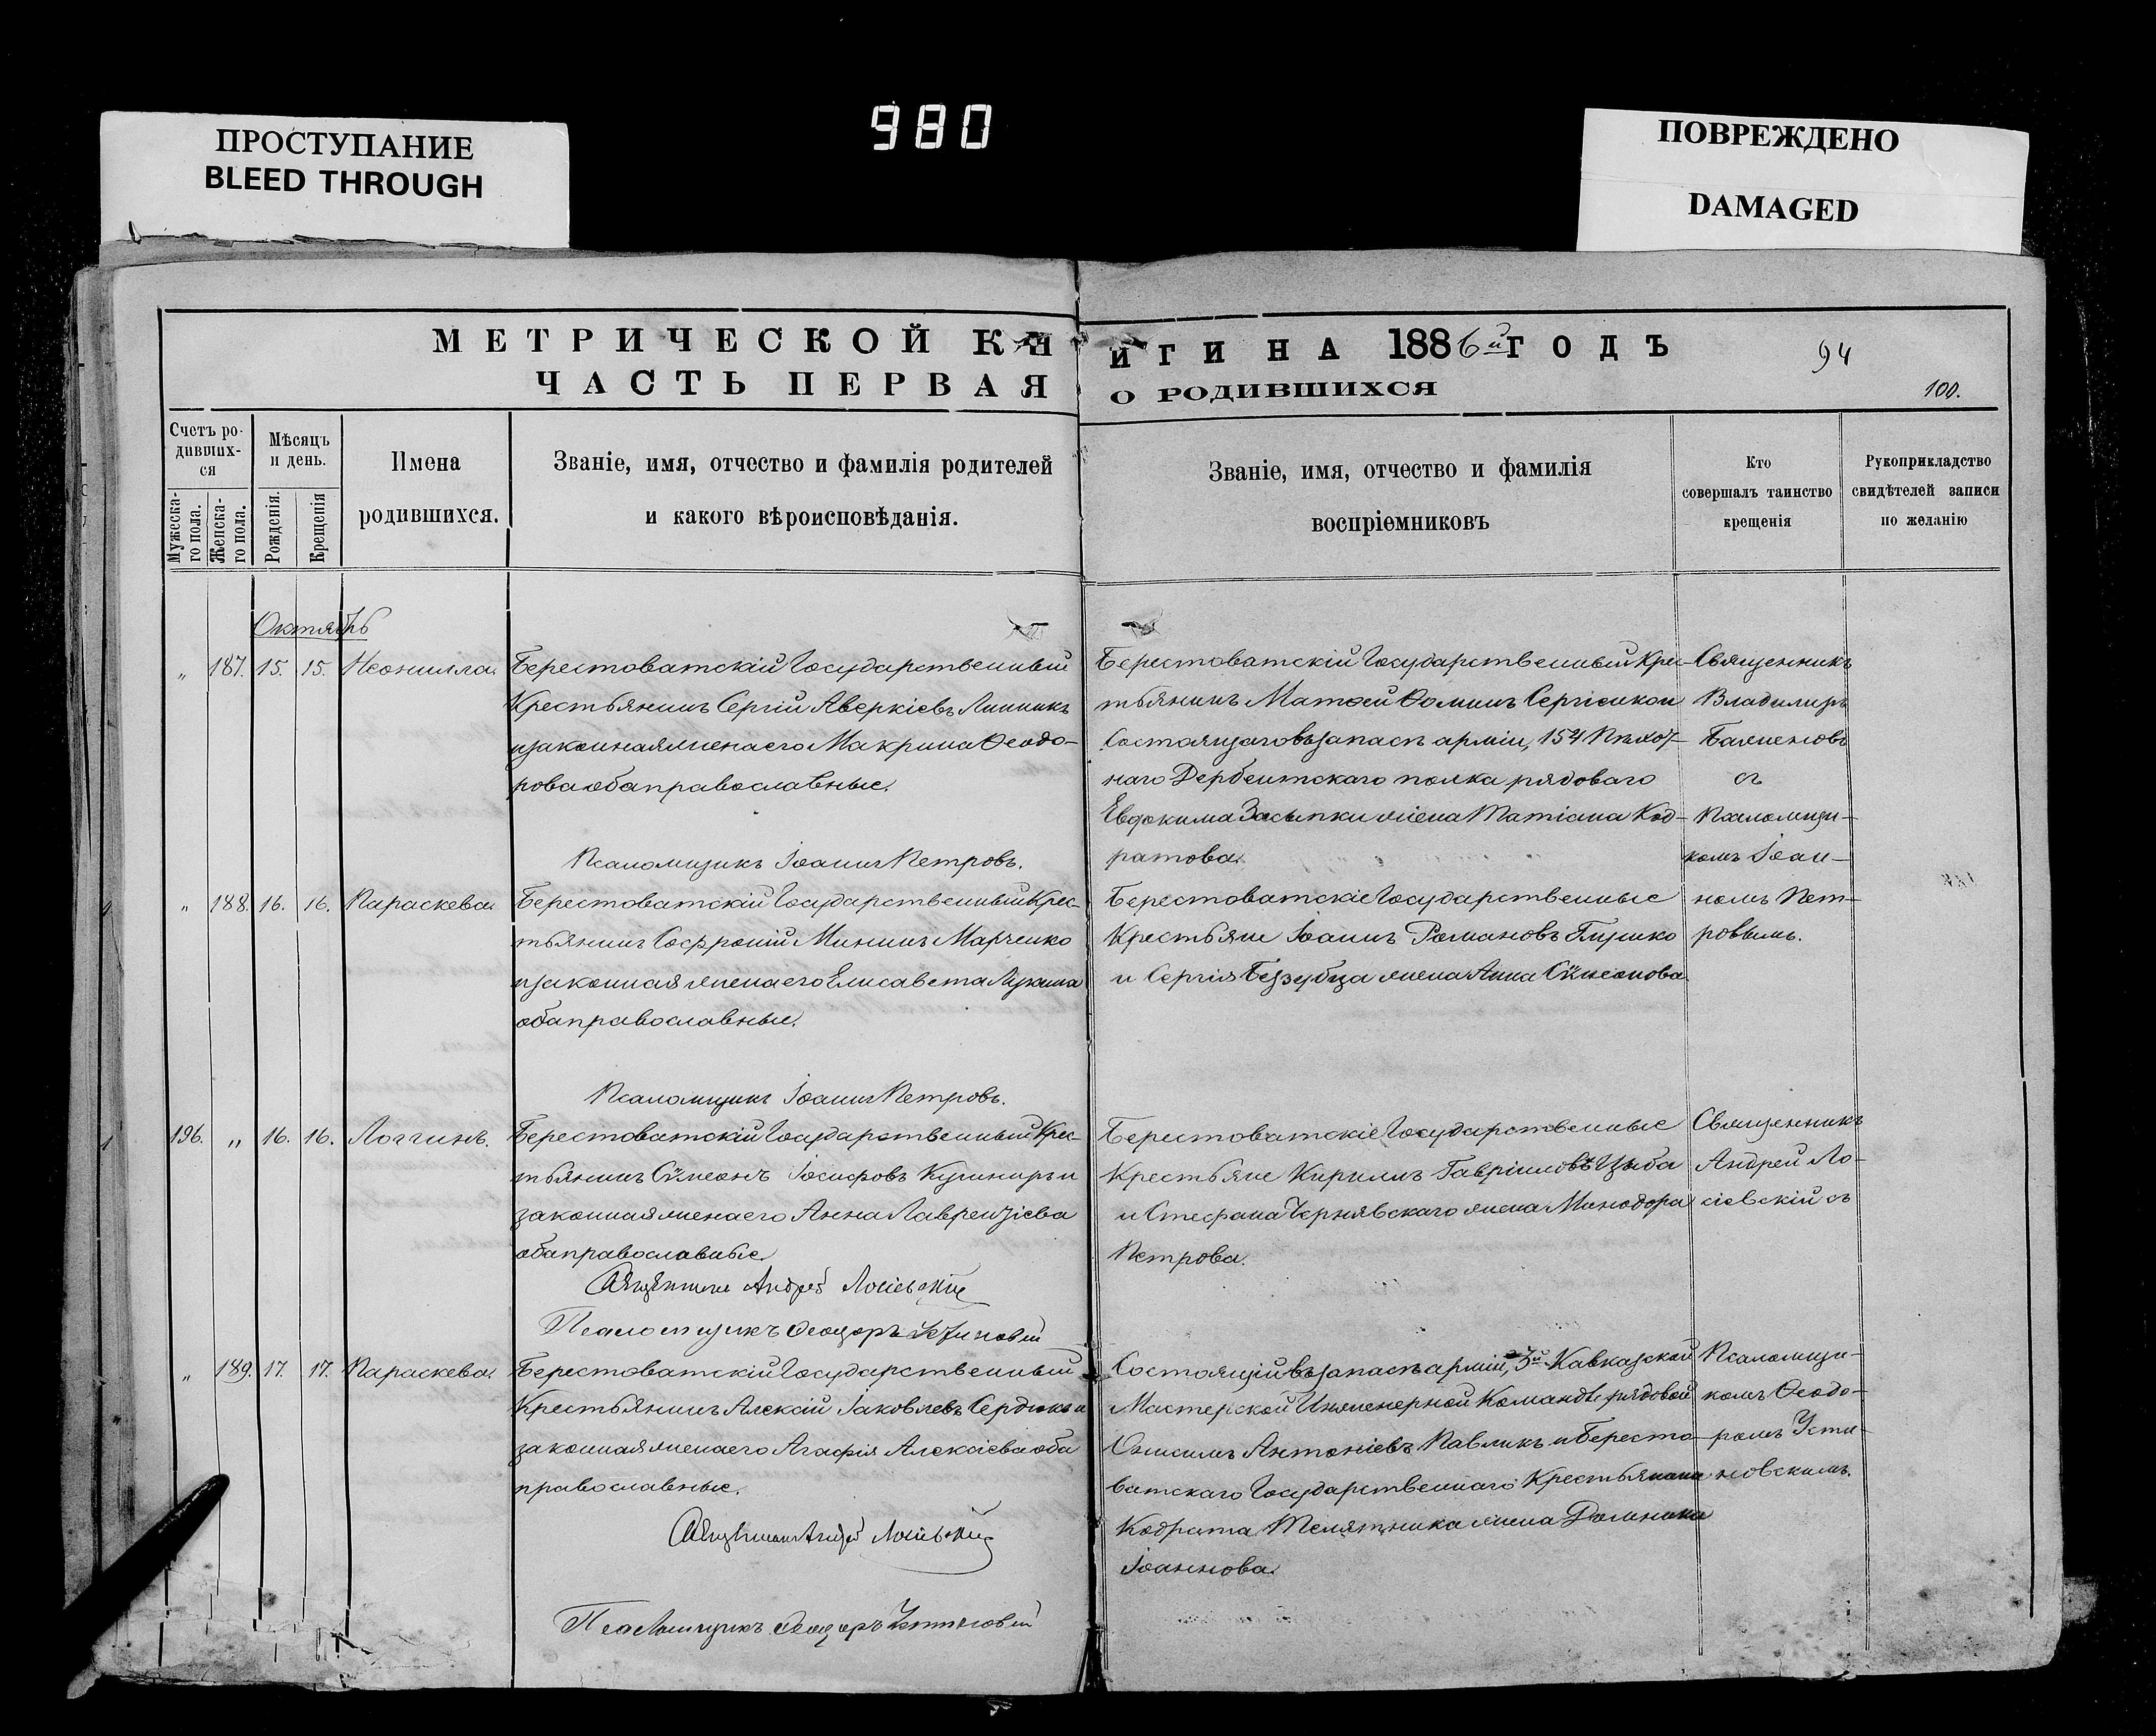 ПРОСТУПАНИЕ
BLEED THROUGH
980
ПОВРЕЖДЕНО
DAMAGED
МЕТРИЧЕСКОЙ КНИГИ НА 1886й ГОДЪ
94
ЧАСТЬ ПЕРВАЯ О РОДИВШИХСЯ
100.
Счетъ родившихся
Мужескаго пола.
Женскаго пола.
Мѣсяцъ и день.
Рожденія.
Крещенія
Имена
родившихся.
Званіе, имя, отчество и фамилія родителей
и какого вѣроисповѣданія.
Званіе, имя, отчество и фамилія
воспріемниковъ
Кто
совершалъ таинство
крещенія
Рукоприкладство
свидѣтелей записи
по желанію
Октябрь
„ 187. 15. 15. Неонилла.
Берестоватскій Государственный
Крестьянинъ Сергій Аверкіевъ Линникъ
и законная жена его Макрина Ѳеодо-
рова оба православные.
Псаломщикъ Іоаннъ Петровъ.
Берестоватскій Государственный Крес-
тьянинъ Матѳей Ѳоминъ Сергіенко и
Состоящаго въ запасѣ арміи, 154 Пѣхот-
наго Дербентскаго полка рядоваго
Евдокима Засыпки жена Татіана Код-
ратова.
Священникъ
Владимиръ
Баженовъ
съ
Псаломщи-
комъ Іоан-
номъ Пет-
ровымъ.
„ 188. 16. 16. Параскева.
Берестоватскій Государственный Крес-
тьянинъ Софроній Мининъ Марченко
и законная жена его Елисавета Лукина
оба православные.
Псаломщикъ Іоаннъ Петровъ.
Берестоватскіе Государственные
Крестьяне Іоаннъ Романовъ Глушко
и Сергія Беззубца жена Анна Сѵмеонова.
196. „ 16. 16. Логгинъ.
Берестоватскій Государственный Крес-
тьянинъ Сѵмеонъ Іосифовъ Кушниръ и
законная жена его Анна Лаврентіева
оба православные.
Священникъ Андрей Лосіевскій
Псаломщикъ Ѳеодоръ Устиновскій
Берестоватскіе Государственные
Крестьяне Кириллъ Гавріиловъ Цыба
и Стефана Чернявскаго жена Минодора
Петрова.
Священникъ
Андрей Ло-
сіевскій съ
Псаломщи-
комъ Ѳеодо-
ромъ Усти-
новскимъ.
„ 189. 17. 17. Параскева.
Берестоватскій Государственный
Крестьянинъ Алексій Іаковлевъ Сердюкъ и
законная жена его Агафія Алексіева оба
православные.
Священникъ Андрей Лосіевскій
Псаломщикъ Ѳеодоръ Устиновскій
Состоящій въ запасѣ арміи, 3й Кавказской
Мастерской Инженерной Командѣ, рядовой
Онисимъ Антоніевъ Павликъ и Бересто-
ватскаго Государственнаго Крестьянина
Кодрата Телятника жена Домника
Іоаннова.